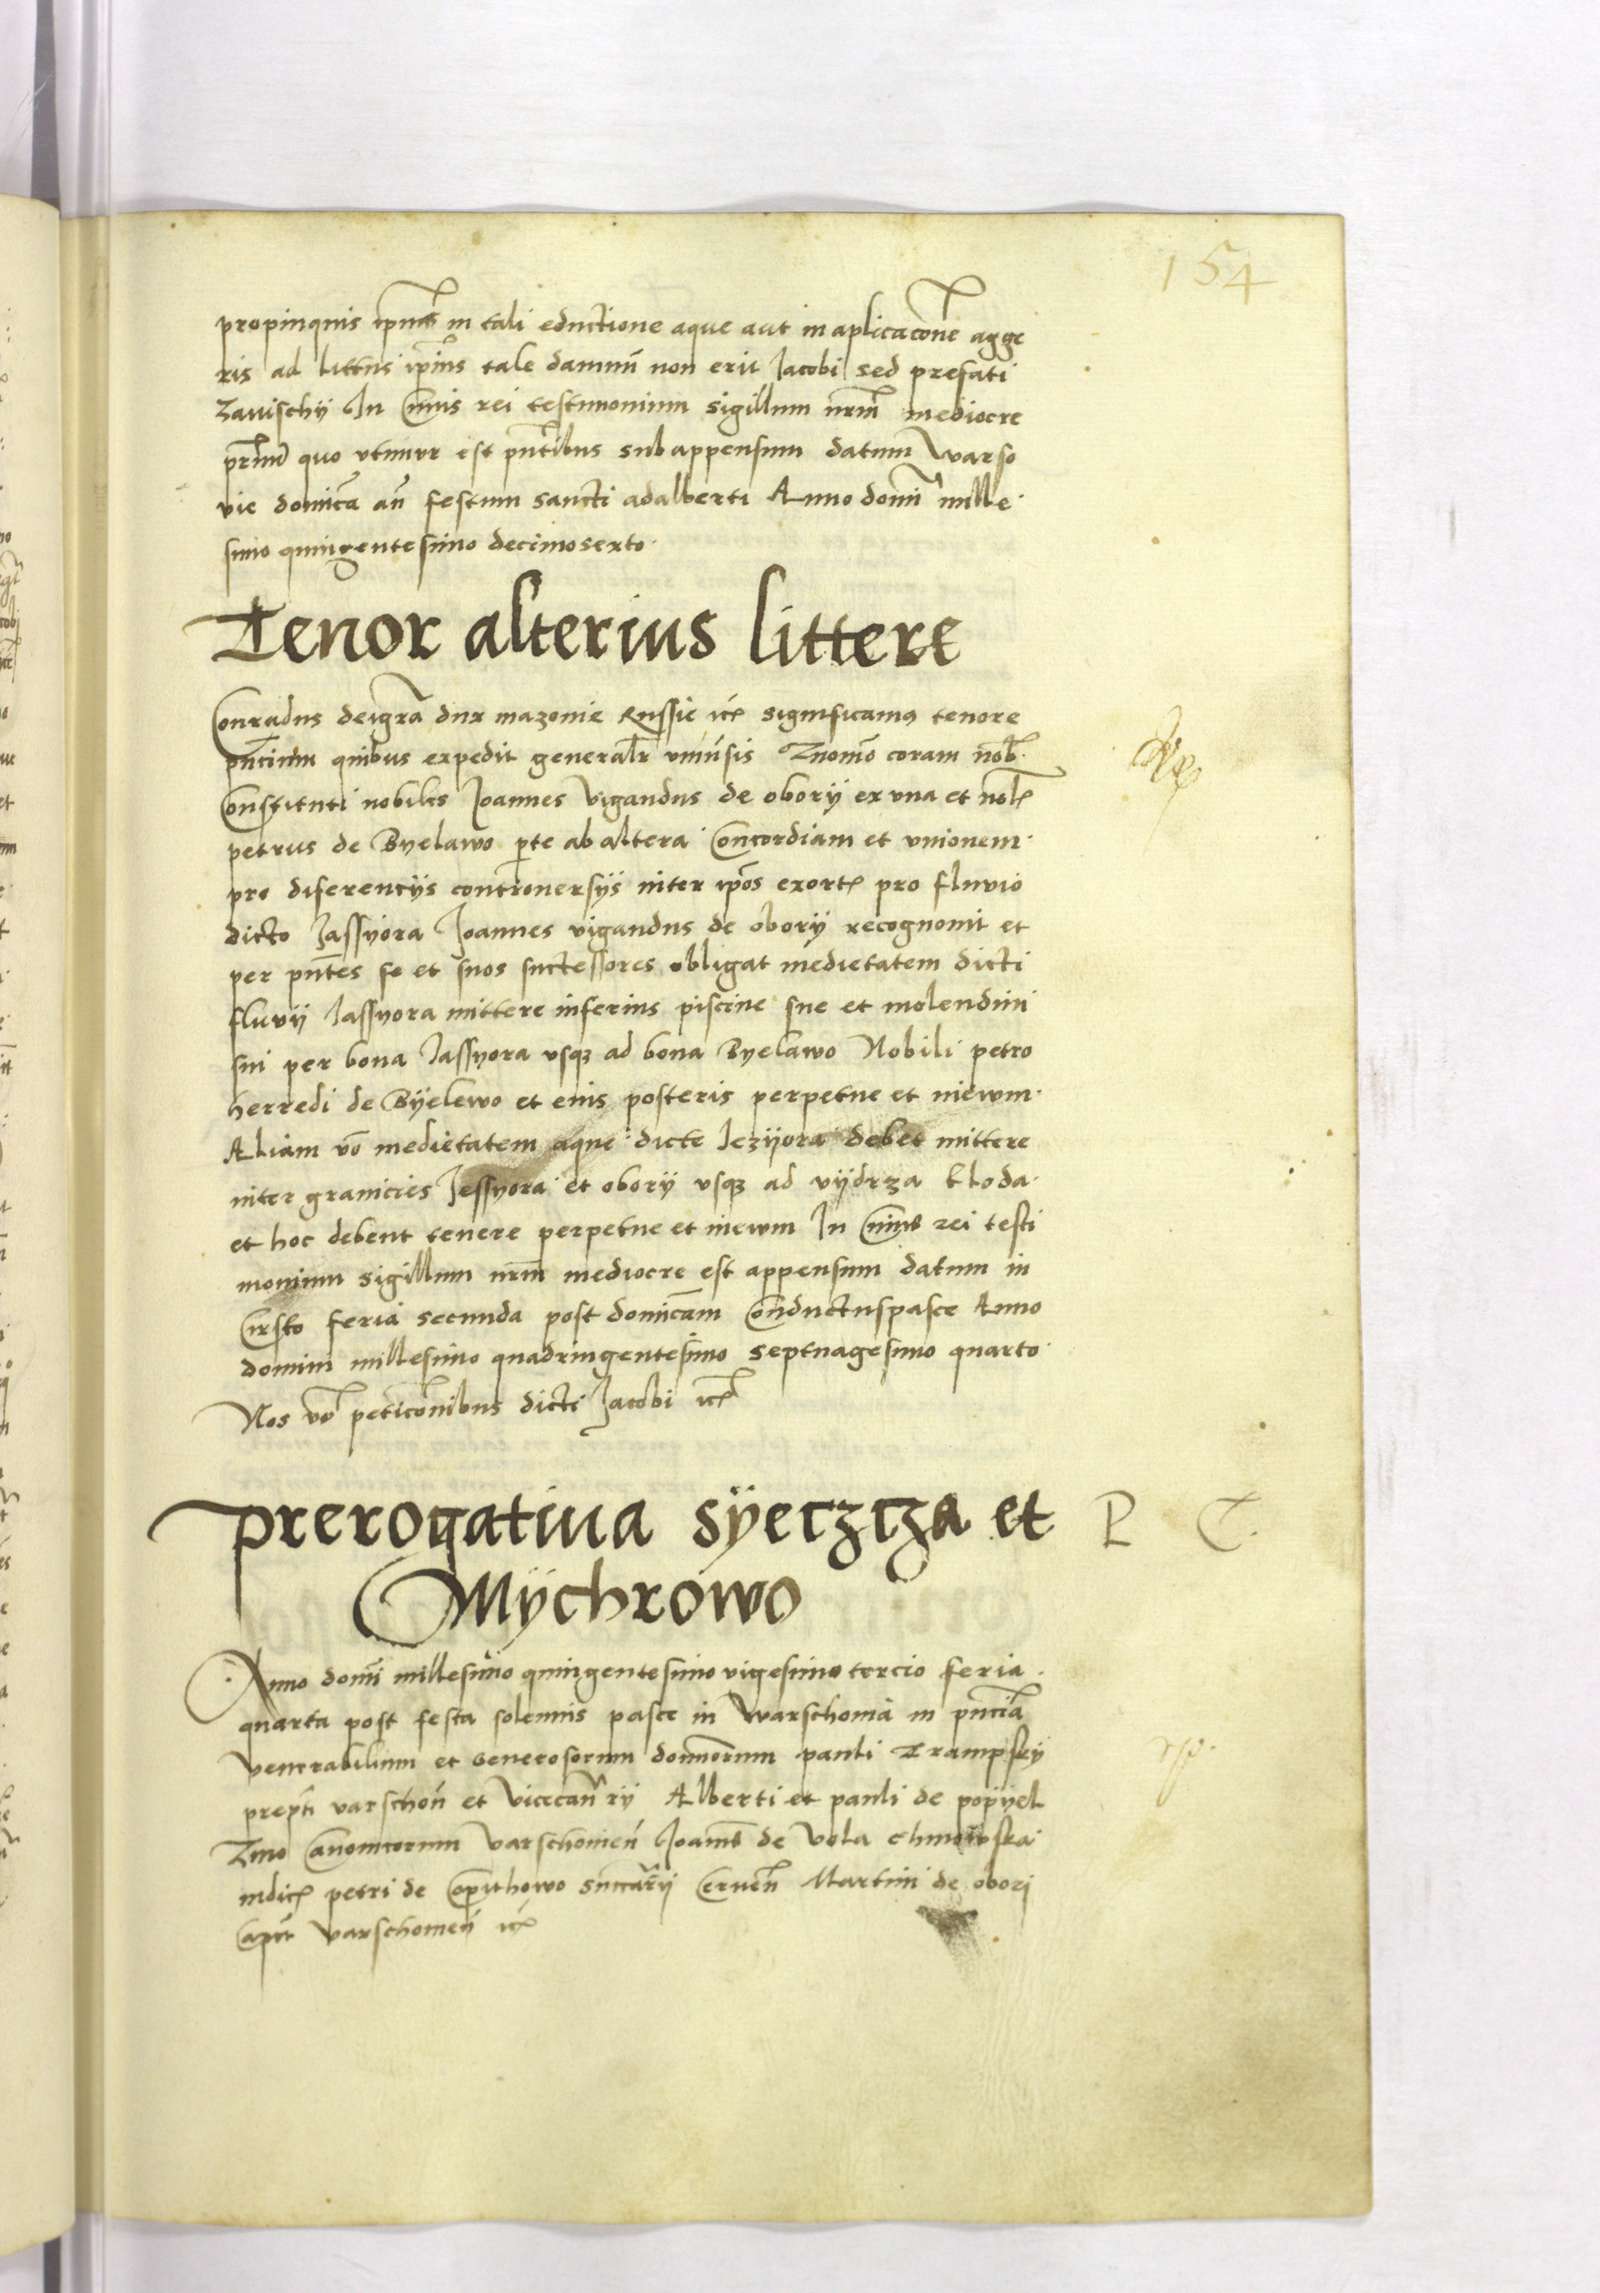 154
propinquis in tali eductione aque aut in aplicacoñe agge
ris ad littus ipīus tale damnū non erit Jacobi sed prefati
Zauischÿ In Cuius rei testimonium sigillum nrm̄ mediocre
quo vtimur est pñtibus subappensum datum warso
vie domīca añ festum sancti adalberti Anno domī mille
simo quingentesimo decimosexto
Tenor alterius littere
Conradus deigrā dux mazouie Russie ict significamus tenore
pñcium quibus expedit vniūsis coram nobꝭ
Constituti nobiles Joannes Vigandus de oborÿ ex vna et nobꝭ
petrus de Byelawo pte ab altera Concordiam et vnionem
pro diferencÿs controuersÿs inter ipōs exortꝭ pro fluvio
dicto Jassyora Joannes vigandus de oborÿ recognouit et
per pñtes se et suos suctessores obligat medietatem dicti
fluvÿ Jassyora mittere inferius piscine sue et molendini
sui per bona Jassyora vsqꝫ ad bona Byelawo Nobili petro
herredi de Bÿelewo et eius posteris perpetue et inewm
Aliam vō medietatem aque dicte Jezÿora debet mittere
inter granicies Jessyora et oborÿ vsqꝫ ad vÿdrza kloda
et hoc debent tenere perpetue et inewm In cuius rei testi
monium sigillum nrm̄ mediocre est appensum datum in
Cirsko feria secunda post domīcam Conductuspasce Anno
domini millesimo quadringentesimo septuagesimo quarto
Nos vō peticoñibus dicti Jacobi ict
Prerogatiua sÿeczcza et P C
Mÿchrowo
Anno domī millesimo quingentesimo vigesimo tercio feria
quarta post festa solennis pasce in warschouia in pñcia
venerabilium et Generosorum domorum pauli krampskÿ
prepti varschoñ et Vicecan rÿ Alberti et pauli de popÿel
Zino Canonicorum varschouieñ Joannis de Vola chmowska
iudicꝭ petri de Opithowo succarÿ Cerneñ Martini de oborj
Capit varschouieñ ict